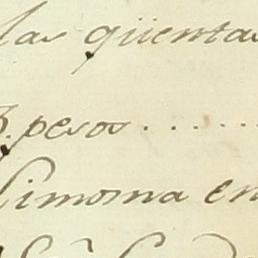 las qüentas
3. pesos . . . . . .
Limosna en